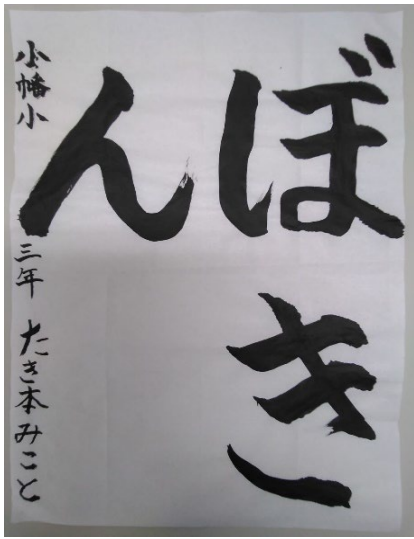 ぼき
ん
小幡小 三年 たき本みこと